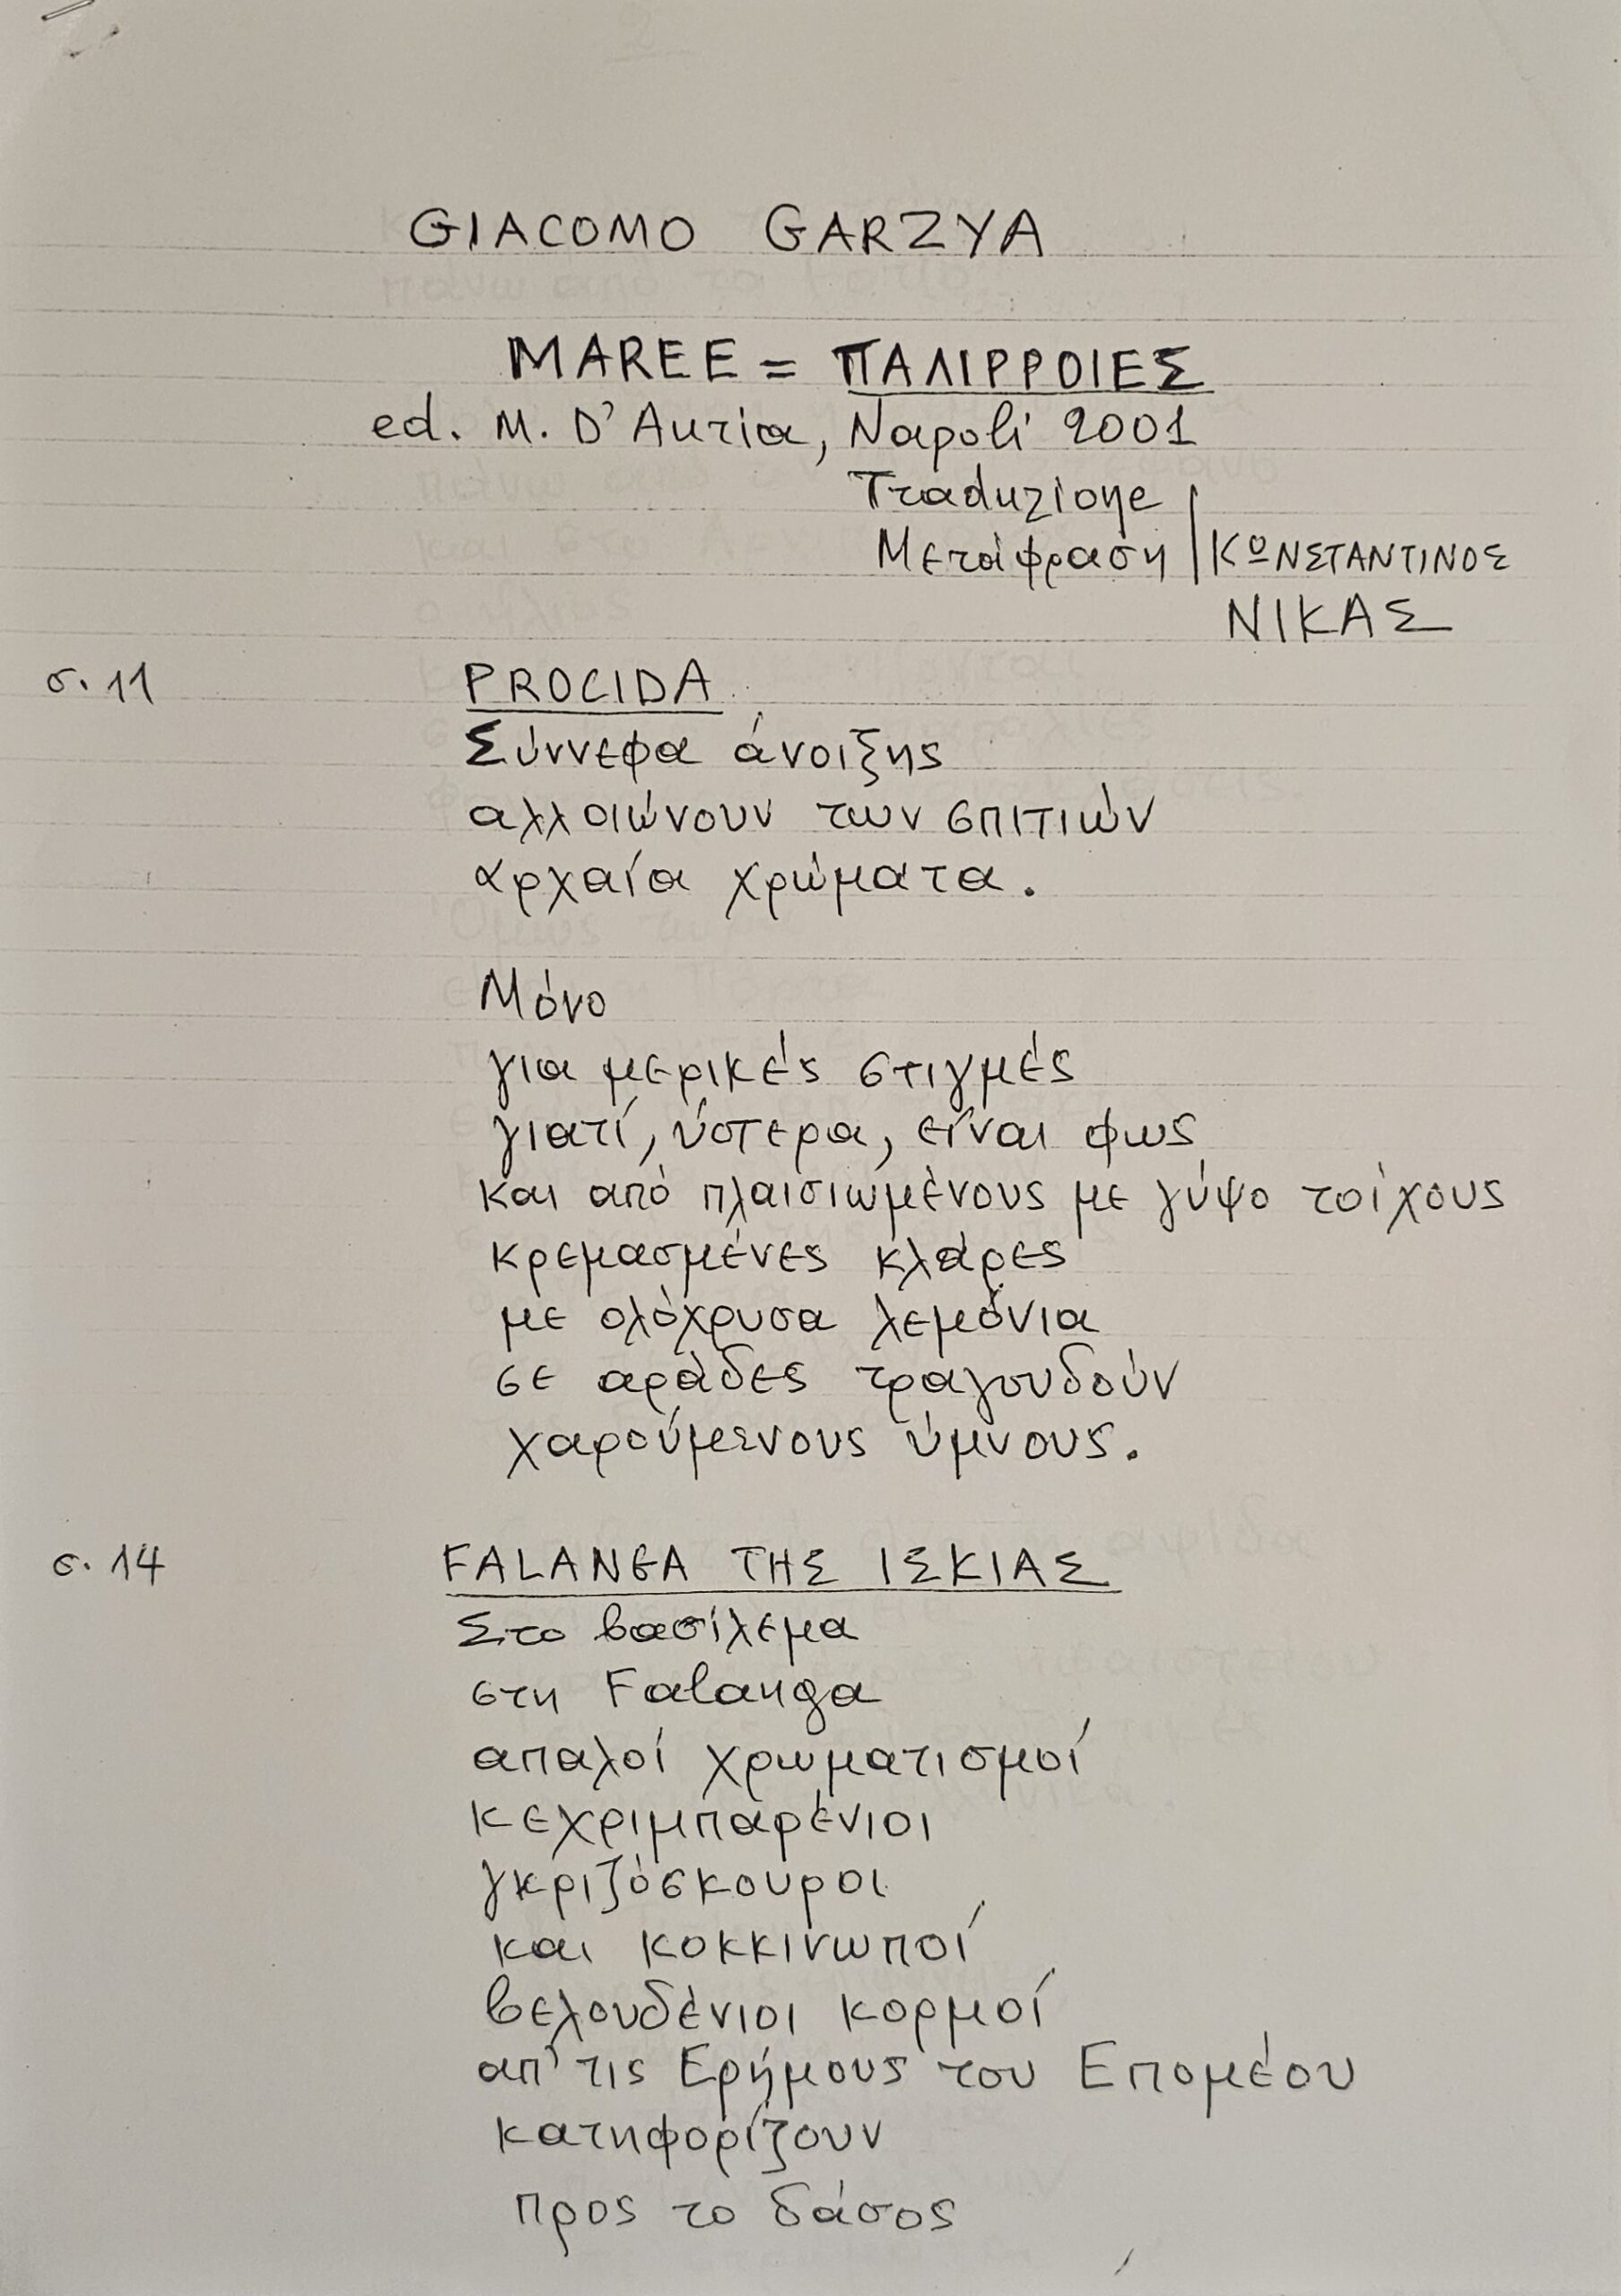 GIACOMO GARZYA
MAREE = ΠΑΛΙΡΡΟΙΕΣ
ed. M. D'Auria, Napoli 2001
Traduzione
Μετάφραση | ΚΩΝΣΤΑΝΤΙΝΟΣ
ΝΙΚΑΣ
σ. 11 PROCIDA
Σύννεφα άνοιξης
αλλοιώνουν των σπιτιών
αρχαία χρώματα.
Μόνο
για μερικές στιγμές
γιατί, ύστερα, είναι φως
και από πλαισιωμένους με γύψο τοίχους
κρεμασμένες κλάρες
με ολόχρυσα λεμόνια
σε αράδες τραγουδούν
χαρούμενους ύμνους.
σ. 14 FALANGA ΤΗΣ ΙΣΚΙΑΣ
Στο βασίλεμα
στη Falanga
απαλοί χρωματισμοί
κεχριμπαρένιοι
γκριζόσκουροι
και κοκκινωποί
βελουδένιοι κορμοί
απ' τις Ερήμους του Επομέου
κατηφορίζουν
προς το δάσος